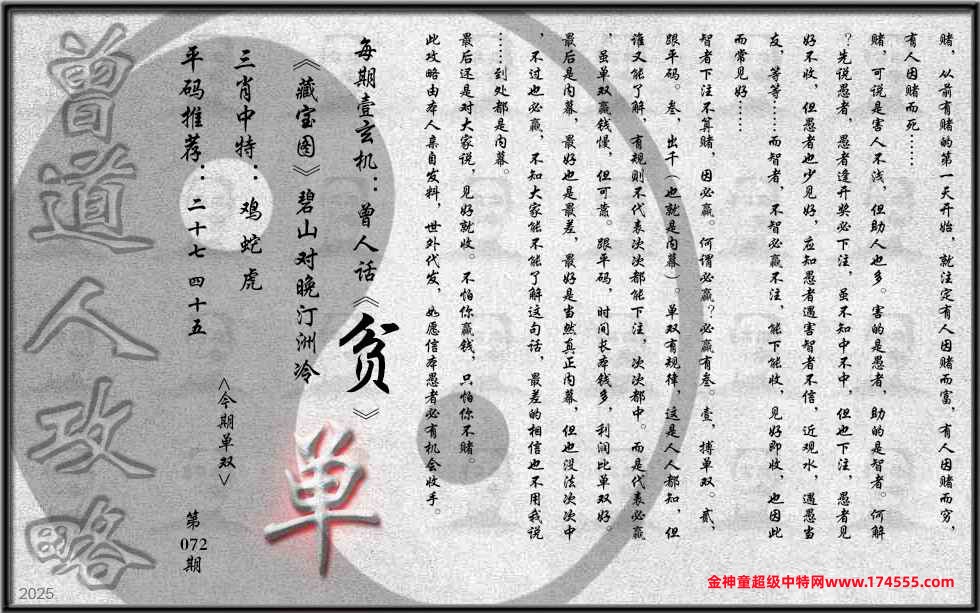 赌，从前有赌的第一天开始，就注定有人因赌而富，有人因赌而穷，
有人因赌而死……
赌，可说是害人不浅，但助人也多。害的是愚者，助的是智者。何解
？先说愚者，愚者逢开奖必下注，虽不知中不中，但也下注，愚者见
好不收，但愚者也少见好，应知愚者遇害智者不信，近观水，遇愚当
友，等等……而智者，不智必赢不注，能下能收，见好即收，也因此
而常见好……
智者下注不算赌，因必赢。何谓必赢？必赢有叁。壹，搏单双。贰，
跟平码。叁，出千（也就是内幕）。单双有规律，这是人人都知，但
谁又能了解，有规则不代表次次都能下注，次次都中。而是代表必赢
，虽单双赢钱慢，但可靠。跟平码，时间长本钱多，利润比单双好。
最后是内幕，最好也是最差，最好是当然真正内幕，但也没法次次中
，不过也必赢，不知大家能不能了解这句话，最差的相信也不用我说
……到处都是内幕。
最后还是对大家说，见好就收。不怕你赢钱，只怕你不赌。
此攻略由本人亲自发料，世外代发，如愿信本愚者必有机会收手。
每期壹玄机：曾人话《贫》
《藏宝图》碧山对晚汀洲冷
三肖中特：鸡蛇虎
平码推荐：二十七 四十五
<今期单双>
单
第
072
期
曾道人攻略
2025
金神童超级中特网www.174555.com